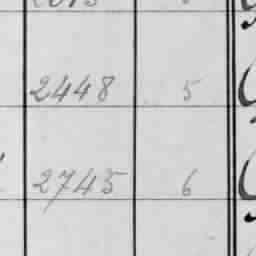 2448 5
2745 6